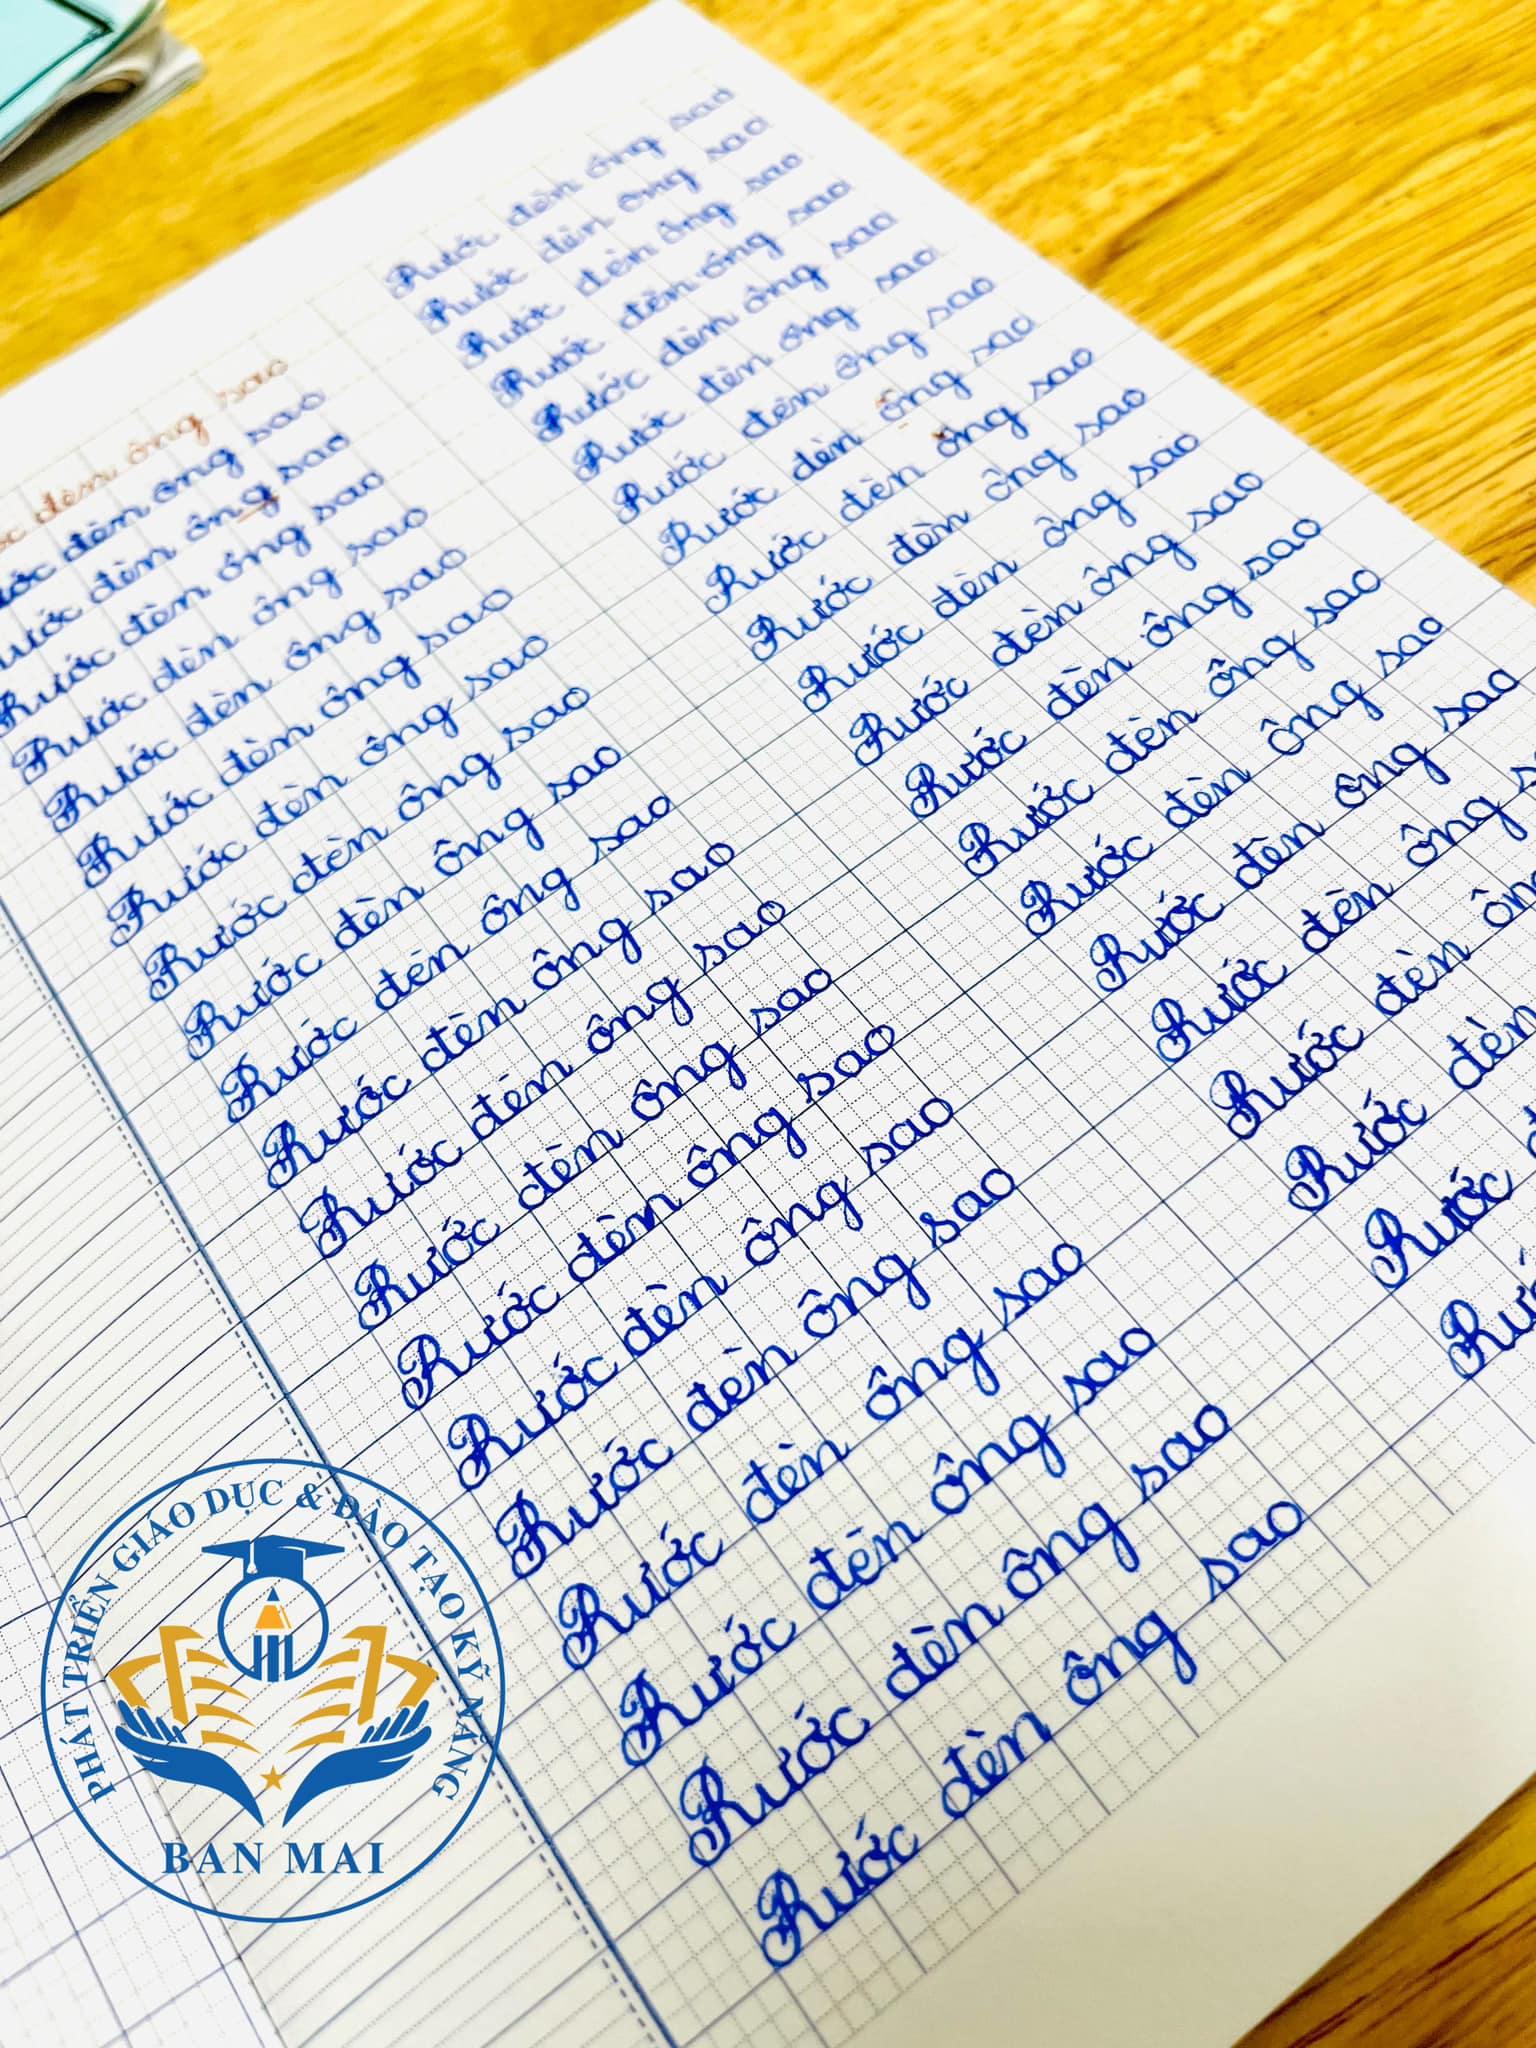 ớc đèn ông sao
ước đèn ông sao
ước đèn ông sao
Rước đèn ông sao
Rước đèn ông sao
Rước đèn ông sao
Rước đèn ông sao
Rước đèn ông sao
Rước đèn ông sao
Rước đèn ông sao
Rước đèn ông sao
Rước đèn ông sao
Rước đèn ông sao
Rước đèn ông sao
Rước đèn ông sao
Rước đèn ông sao
Rước đèn ông sao
Rước đèn ông sao
Rước đèn ông sao
Rước đèn ông sao
Rước đèn ông sao
Rước đèn ông sao
Rước đèn ông sao
Rước đèn ông sao
Rước đèn ông sao
Rước đèn ông sao
Rước đèn ông sao
Rước đèn ông sao
Rước đèn ông sao
Rước đèn ông sao
Rước đèn ông sao
Rước đèn ông sao
Rước đèn ông sao
Rước đèn ông sao
Rước đèn ông sao
Rước đèn ông sao
Rước đèn ông sao
Rước đèn ông
Rước đèn ông
Rước đèn
Rước
PHÁT TRIỂN GIÁO DỤC & ĐÀO TẠO KỸ NĂNG
BAN MAI